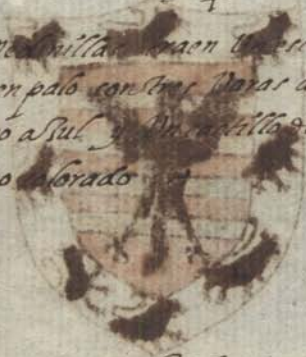 Medinillas traen Un es
en palo con tres Varas a
o aSul y Un castillo
o colorado